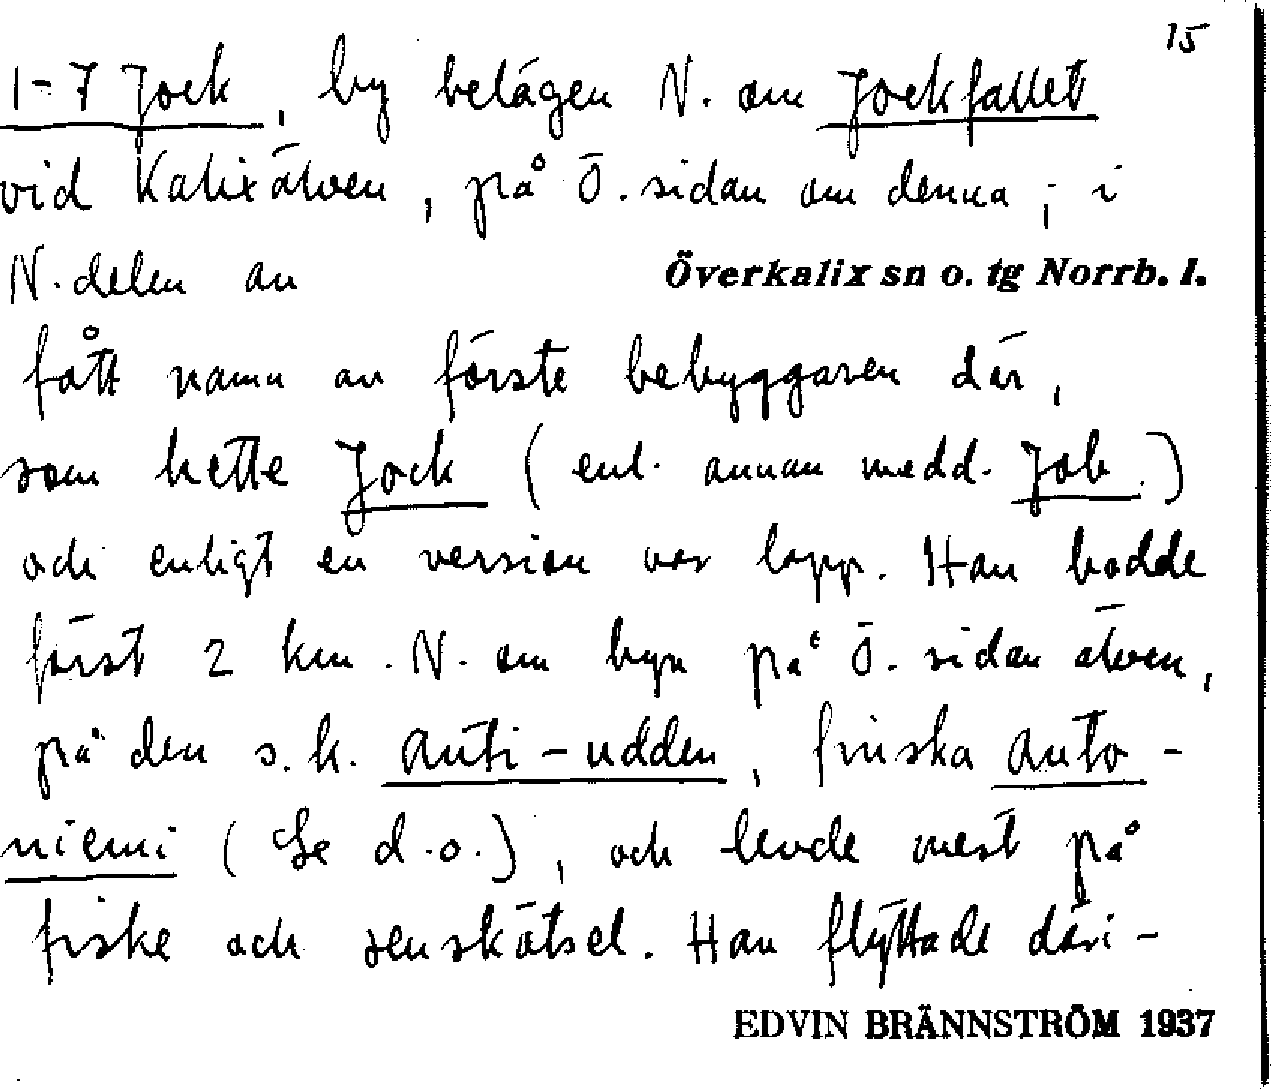 15
1-7 Jock, by belägen N. om Jockfallet
vid Kalixälven, på Ö. sidan om denna; i
N. delen av Överkalix sn o. tg Norrb. l.
fått namn av förste bebyggaren där,
som hette Jock (enl. annan medd. Job.)
och enligt en version var lapp. Han bodde
först 2 km. N. om byn på Ö. sidan älven,
på den s.k. Anti-udden, finska Anto-
niemi (Se d.o.), och levde mest på
fiske och renskötsel. Han flyttade däri-
EDVIN BRÄNNSTRÖM 1937